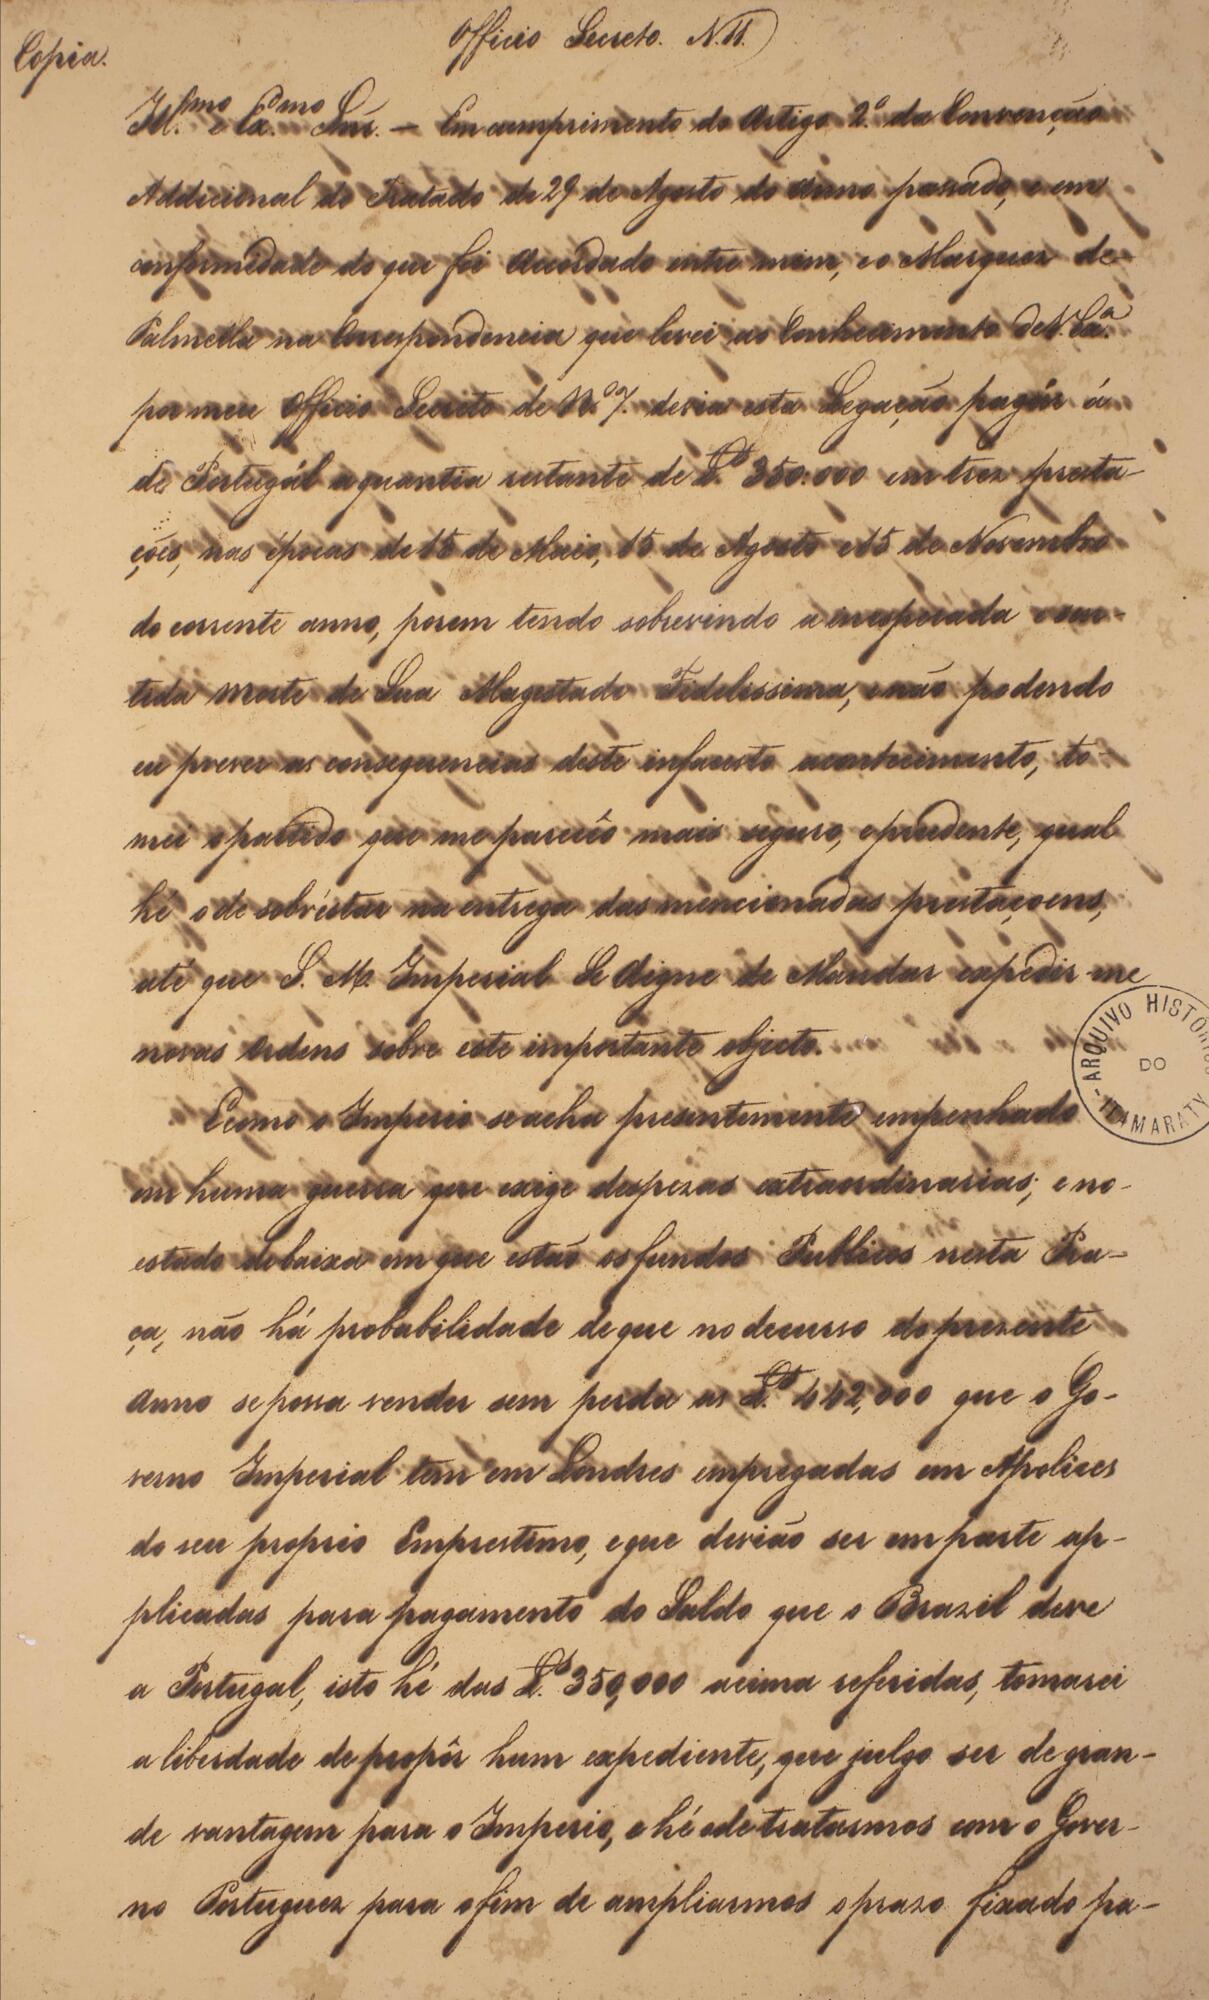 Copia.
Officio Secreto. N. 11.
Ill.mo e Ex.mo Snr. — Em cumprimento do Artigo 2.º da Convenção
Addicional do Tratado de 29 de Agosto do anno passado, e em
conformidade do que foi Acordado entre mim, e o Marquez de
Palmella na Correspondencia que levei ao Conhecimento de V. Ex.a
por meu Officio Secreto de N.º 7. devia esta Legação pagár á
de Portugál a quantia restante de £s 350.000 em trez presta-
ções, nas épocas de 15 de Maio, 15 de Agosto e 15 de Novembro
do corrente anno, porem tendo sobrevindo a inesperada e sen-
tida Morte de Sua Magestade Fidelissima, e não podendo
eu prever as consequencias deste infausto acontecimento, to-
mei o partido que me pareceô mais seguro, e prudente, qual
hé o de sobréstar na entrega das mencionadas prestaçoens,
até que S. M. Imperial Se digne de Mandar expedir-me
novas Ordens sobre este importante objecto.
E como o Imperio se acha presentemente empenhado
em huma guerra que exige despezas extraordinarias; e no
estado de baixa em que estão os fundos Publicos nesta Pra-
ça, não há probabilidade de que no decurso do prezente
Anno se possa vender sem perda as £s 442,000 que o Go-
verno Imperial tem em Londres empregadas em Apolices
do seu proprio Emprestimo, e que devião ser em parte ap-
plicadas para pagamento do Saldo que o Brazil deve
a Portugal, isto hé das £s 350,000 acima referidas, tomarei
a liberdade de propôr hum expediente, que julgo ser de gran-
de vantagem para o Imperio, e hé o de tratarmos com o Gover-
no Portuguez para o fim de ampliarmos o prazo fixado pa-
ARQUIVO HISTÓRICO
DO
ITAMARATY